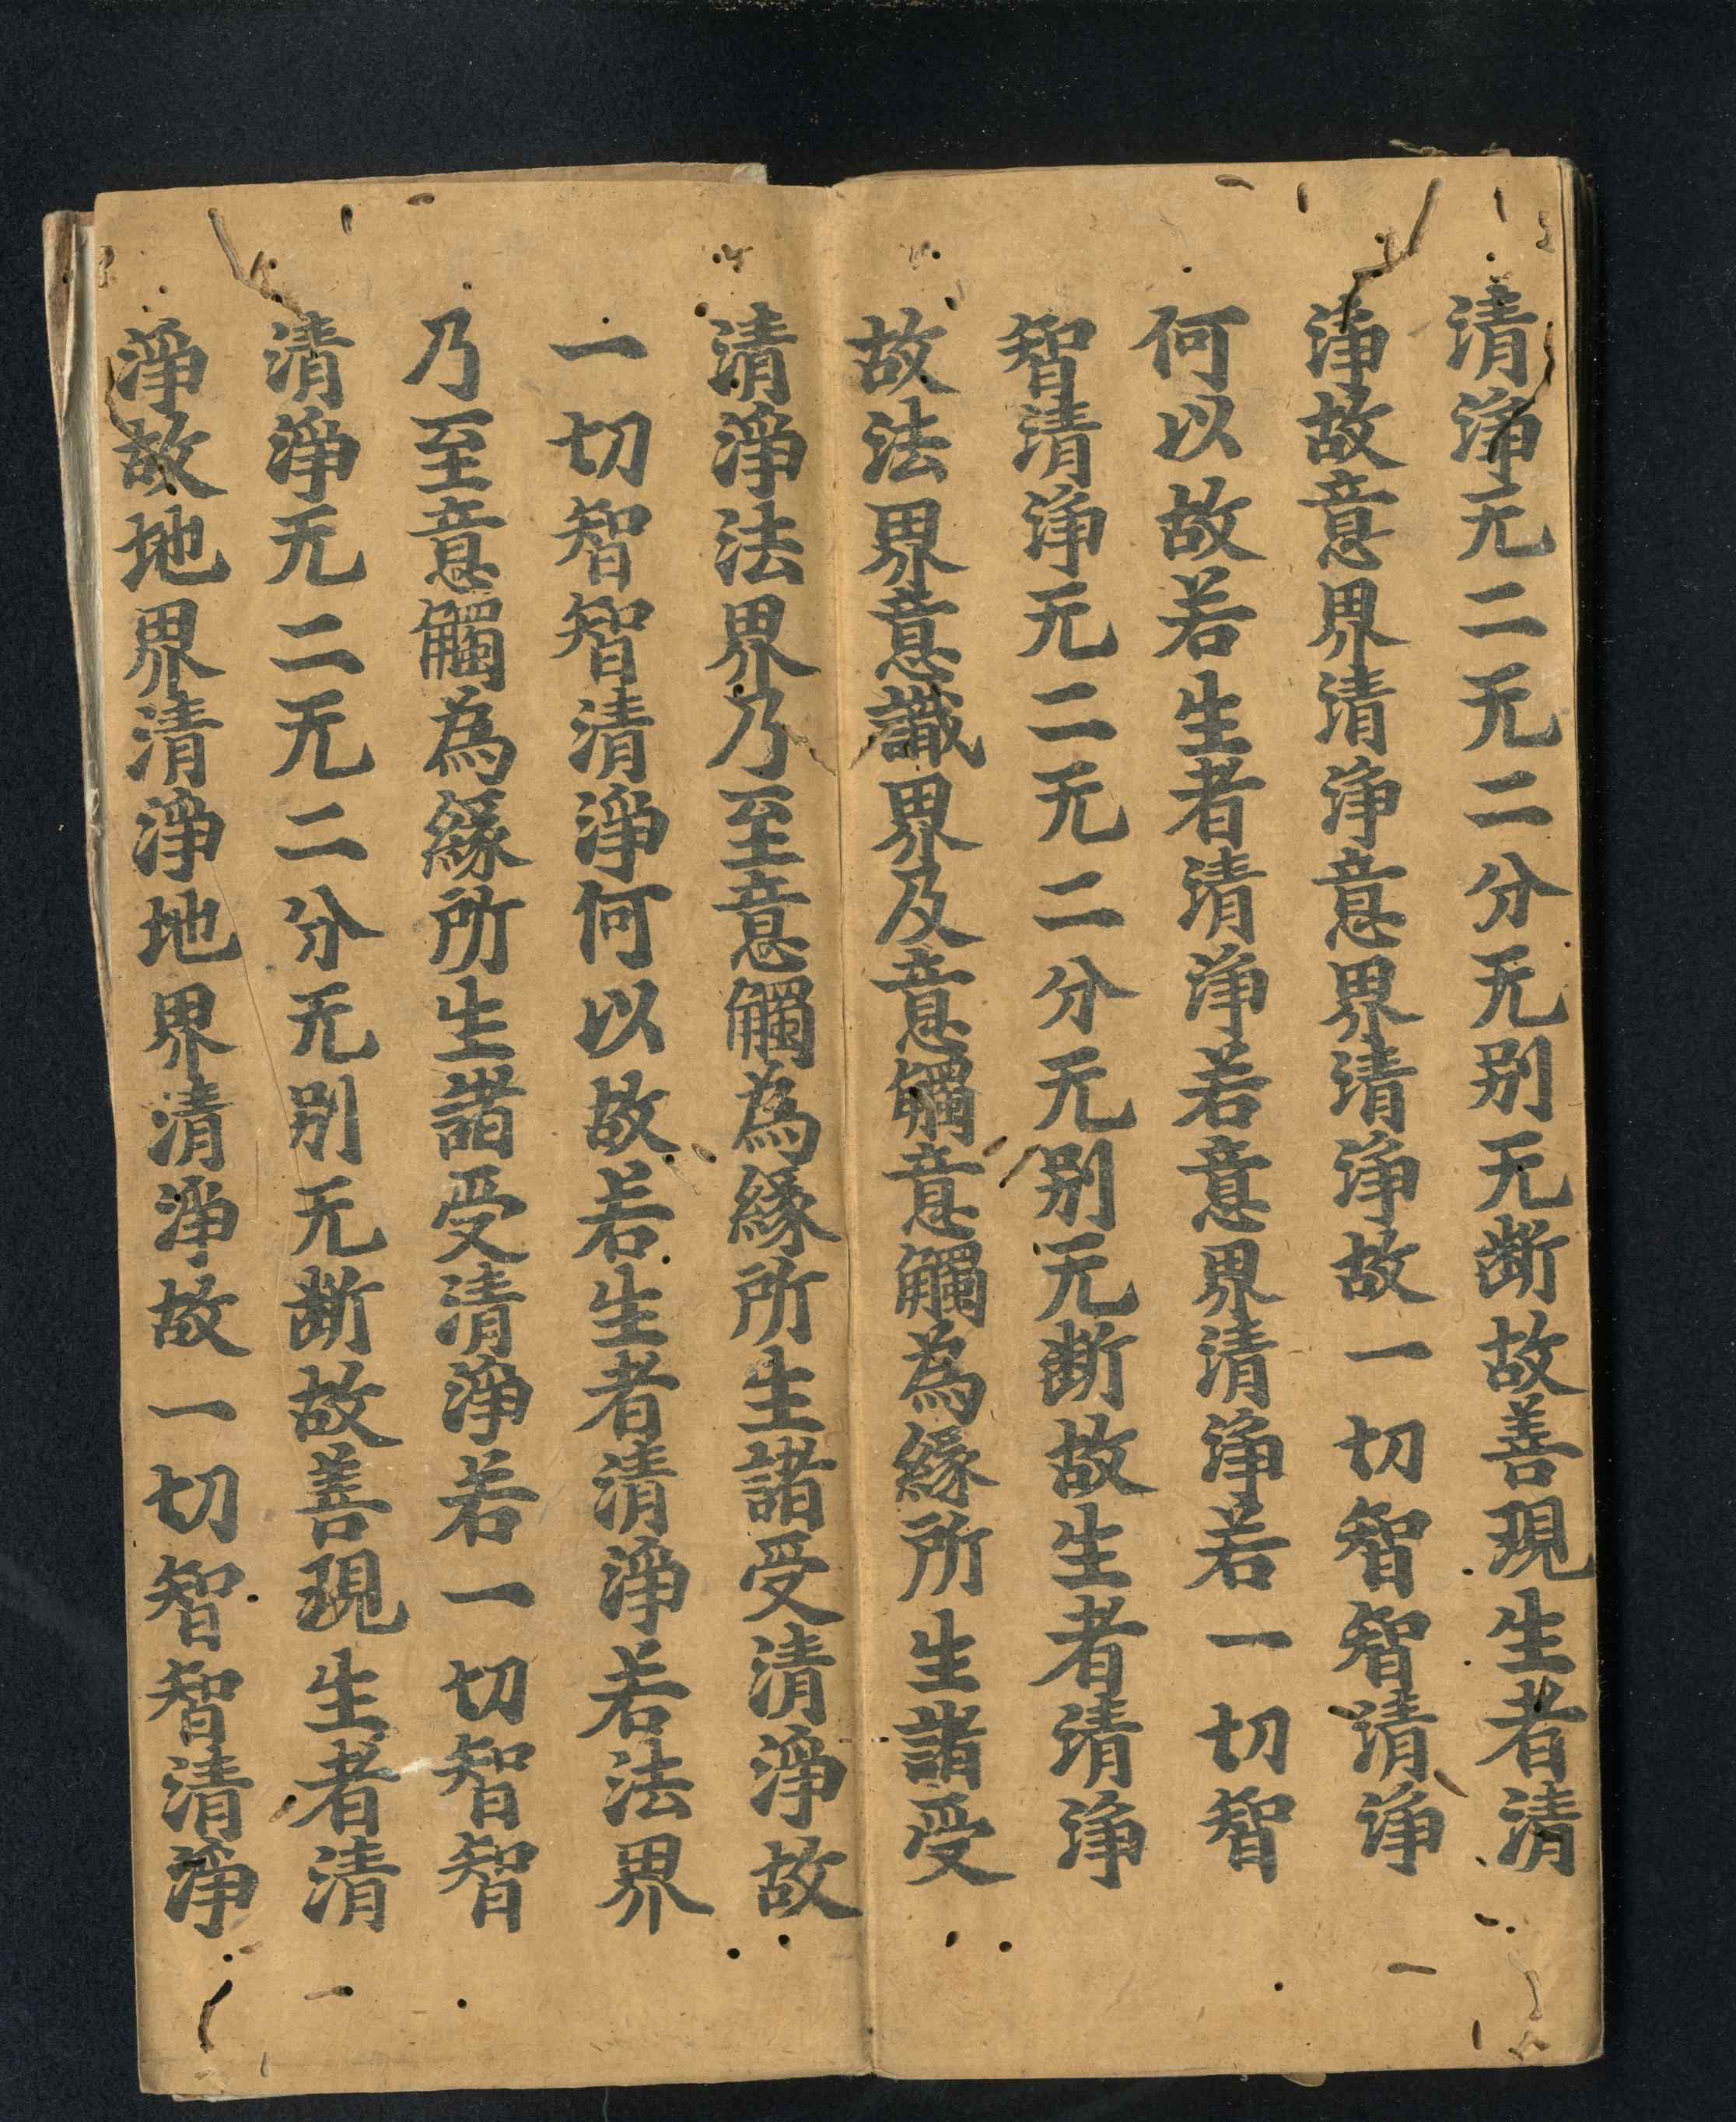 清淨无二无二分无别无斷故善現生者清
淨故意界清淨意界清淨故一切智智清淨
何以故若生者清淨若意界清淨若一切智
智清淨无二无二分无别无斷故生者清淨
故法界意識界及意觸意觸為緣所生諸受
清淨法界乃至意觸為緣所生諸受清淨故
一切智智清淨何以故若生者清淨若法界
乃至意觸為緣所生諸受清淨若一切智智
清淨无二无二分无别无斷故善現生者清
淨故地界清淨地界清淨故一切智智清淨